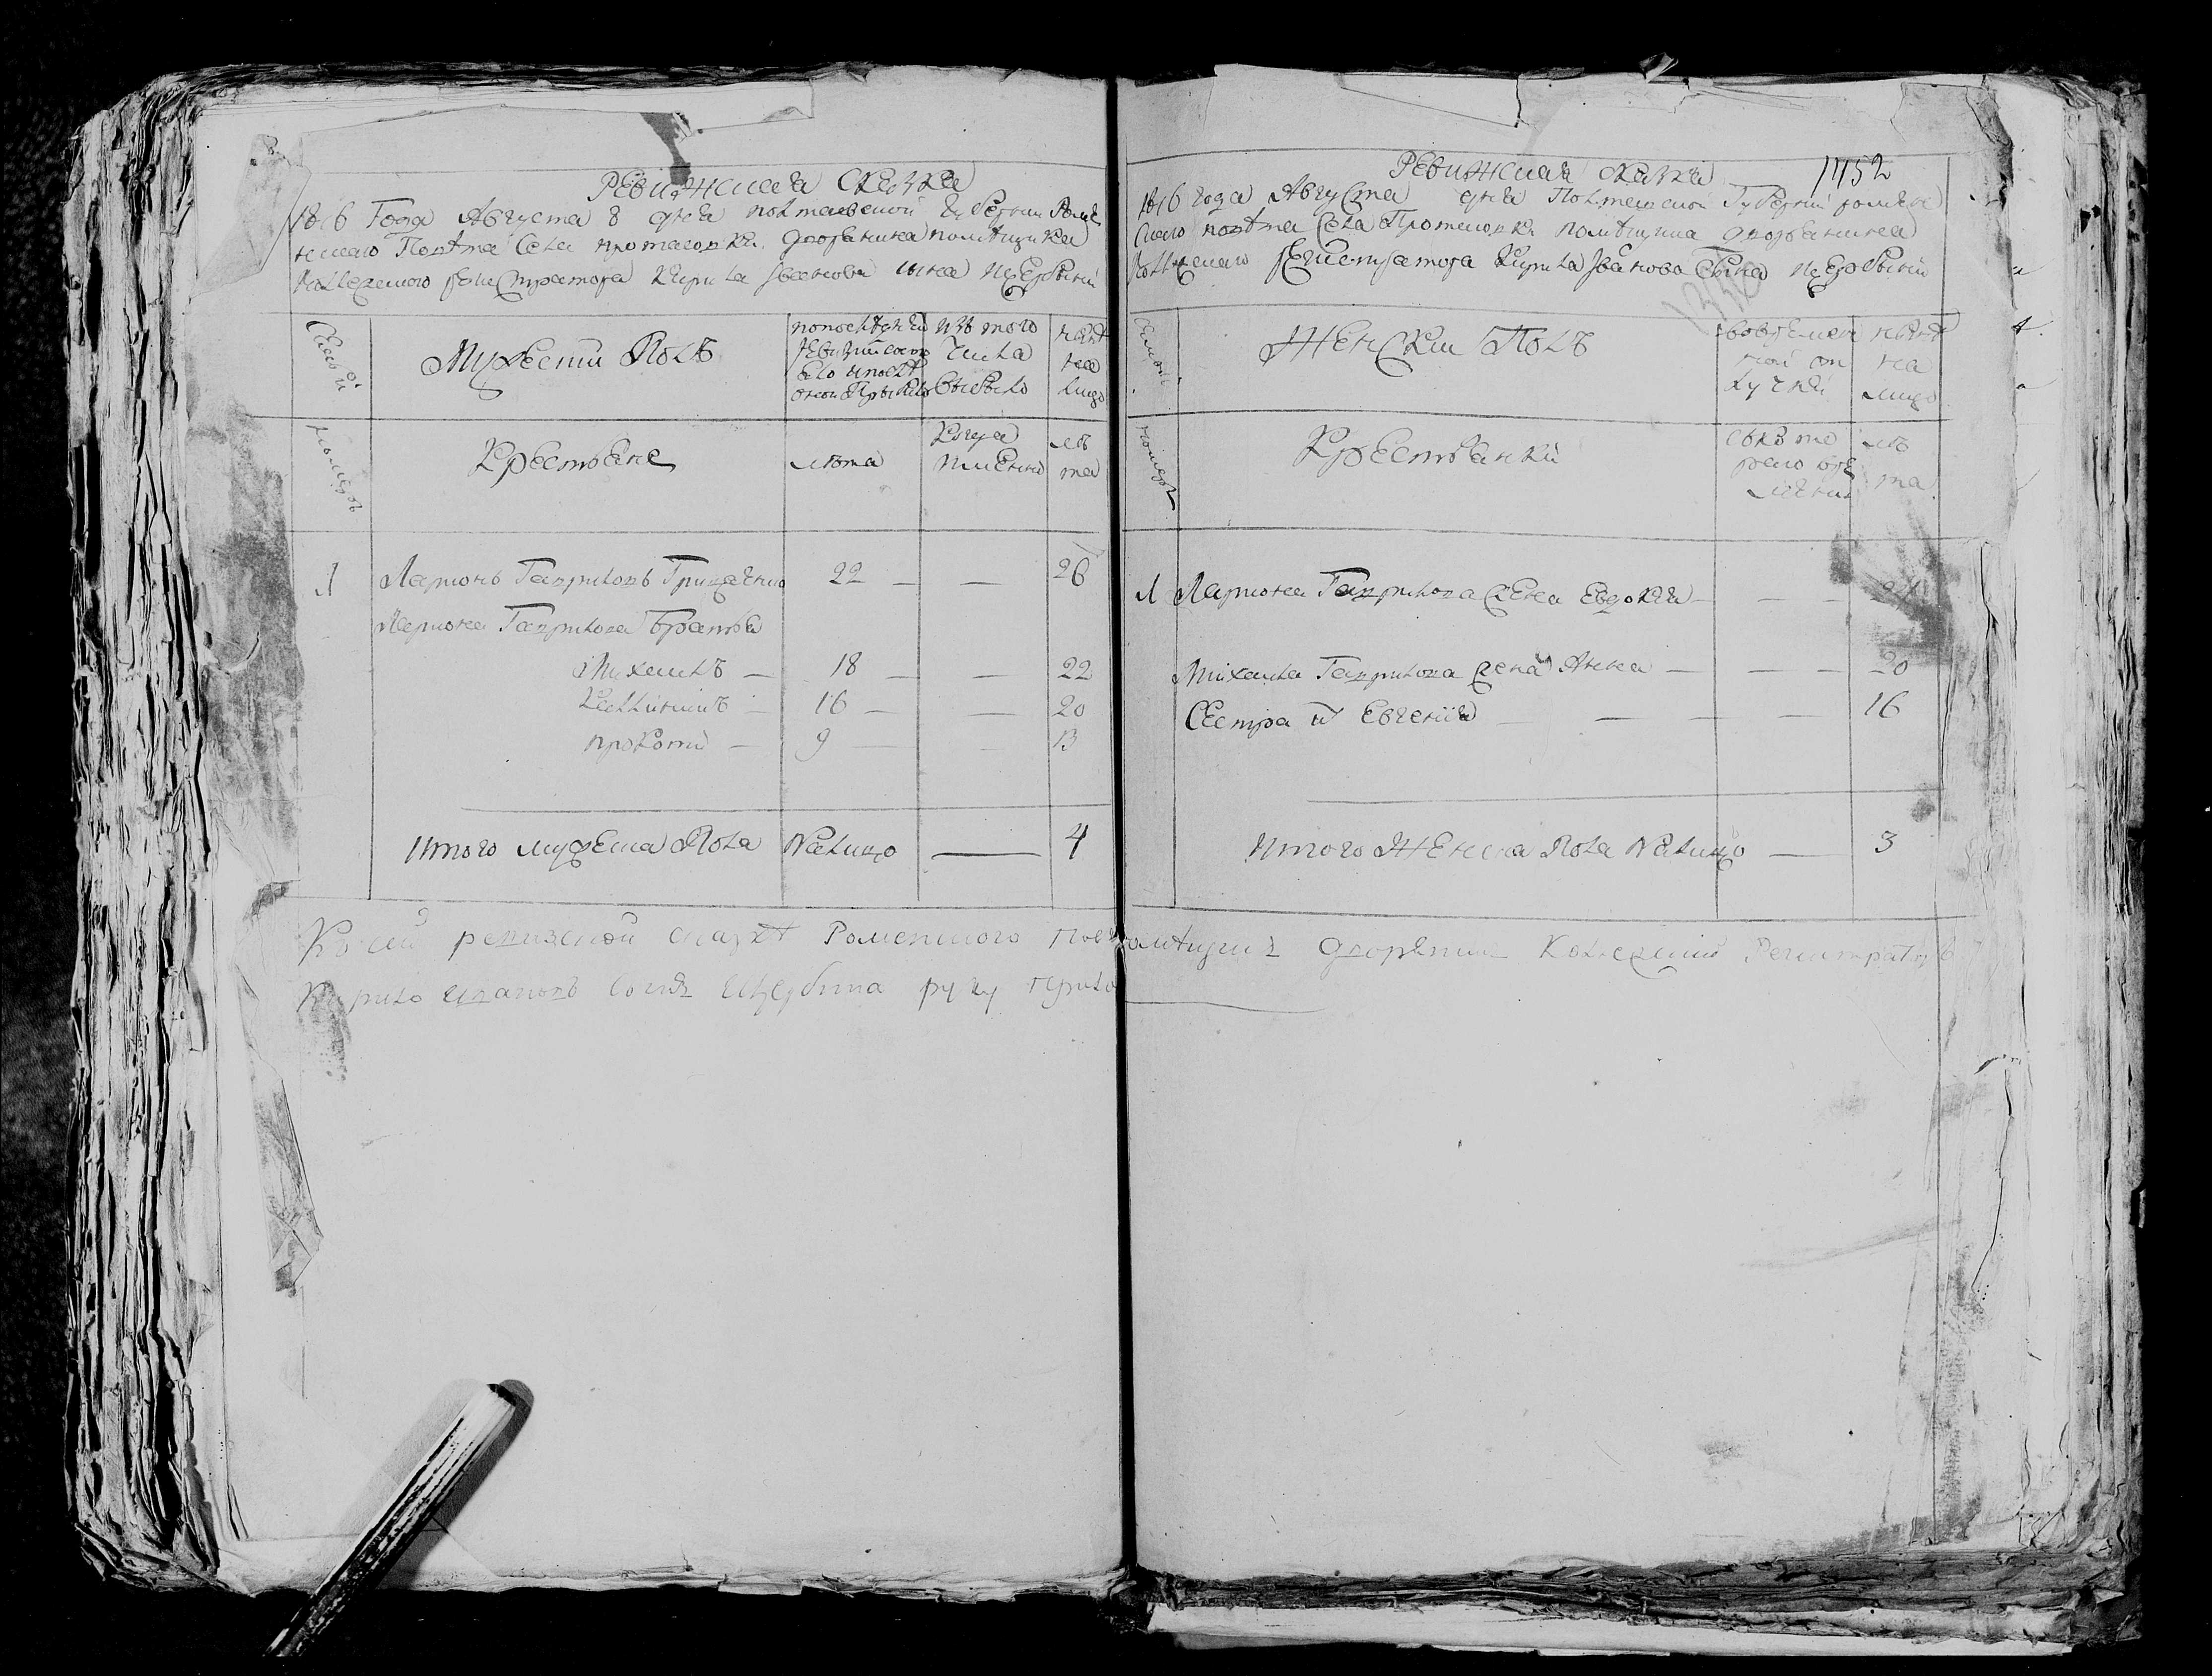 Ревижская скаска
1816 Года Августа 8 дня Полтавской Губернии Роме
нскаго Повѣта Села Протасовки дворанина помѣщика
Коллежского регистратора Кирила Іванова сына Щербыни
Семей
Мужеский Полъ
По последней
ревизии состо
яло и после
оной прыбыло
изъ того
числа
выбыло
нынѣ
на
лицо
номеръ
Крестьяне
лѣта
Когда
именно
лѣ
та
1 Ларионъ Гавриловъ Грицаенко 22 — — 26
Лариона Гаврилова Братья
Михаилъ — 18 — — 22
16 — — 20
Прокопий — 9 — — 13
Итого мужеска Пола Налицо — 4
Ревижская скаска
1452
1816 года Августа дня Полтавской Губернии Роме
скаго повѣта Села Протасовки помѣщика дворанина
Коллежскаго регистратора Кирила Іванова Сына Щербыни
Семей
Женский Полъ
во времен
ной от
лучки
нынѣ
на
лицо
номеръ
Крестьанки
съ кото
раго вре
мени
лѣ
та
1 Лариона Гаврилова жена Евдокия — — —
Михаила Гаврилова жена Анна — — — 20
Сестра их Евгения — — — 16
Итого Женска Пола Налицо — 3
К сей ревизской сказкѣ Роменского повѣта помѣщик дворянин Колежский Регистраторъ
Кирило Ивановъ сынъ Щербина руку прило